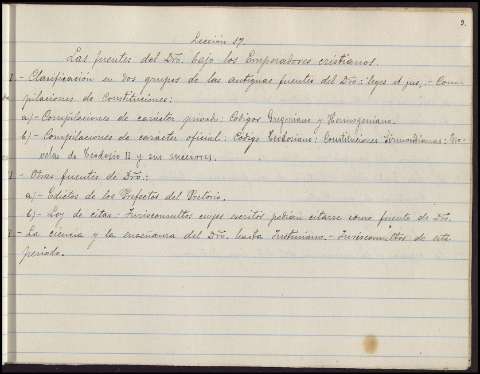 9.
Lección 17
Las fuentes del Dro. bajo los Emperadores cristianos.
I.- Clasificación en dos grupos de las antiguas fuentes del Dro.: leges et jus.- Com-
pilaciones de Constituciones:
a)- Compilaciones de carácter privado: Códigos Gregoriano y Hermogeniano.
b)- Compilaciones de carácter oficial: Código Teodosiano: Constituciones Sirmondianas: No-
velas de Teodosio II y sus sucesores.
- Otras fuentes de Dro.:
a)- Edictos de los Prefectos del Pretorio.
b)- Ley de citas- Jurisconsultos cuyos escritos podían citarse como fuente de Dro.
- La ciencia y la enseñanza del Dro. hasta Justiniano.- Jurisconsultos de este
periodo.